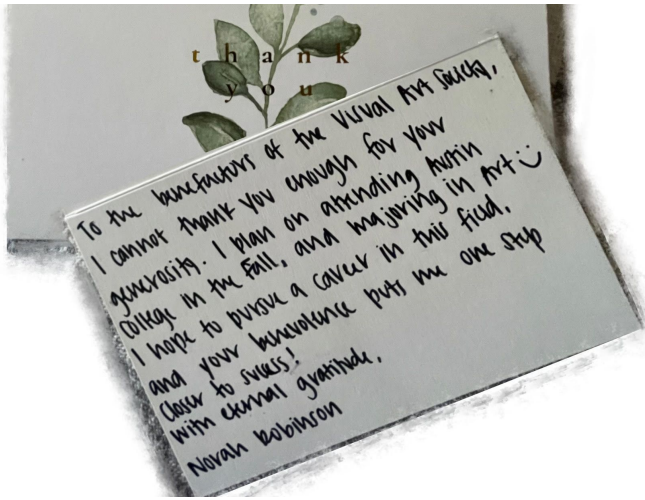 thank
you
To the benefactors of the Visual Art Society,
I cannot thank you enough for your
generosity. I plan on attending Austin
College in the Fall, and majoring in Art :)
I hope to pursue a career in this field,
and your benevolence puts me one step
closer to sucess!
with eternal gratitude,
Norah Robinson